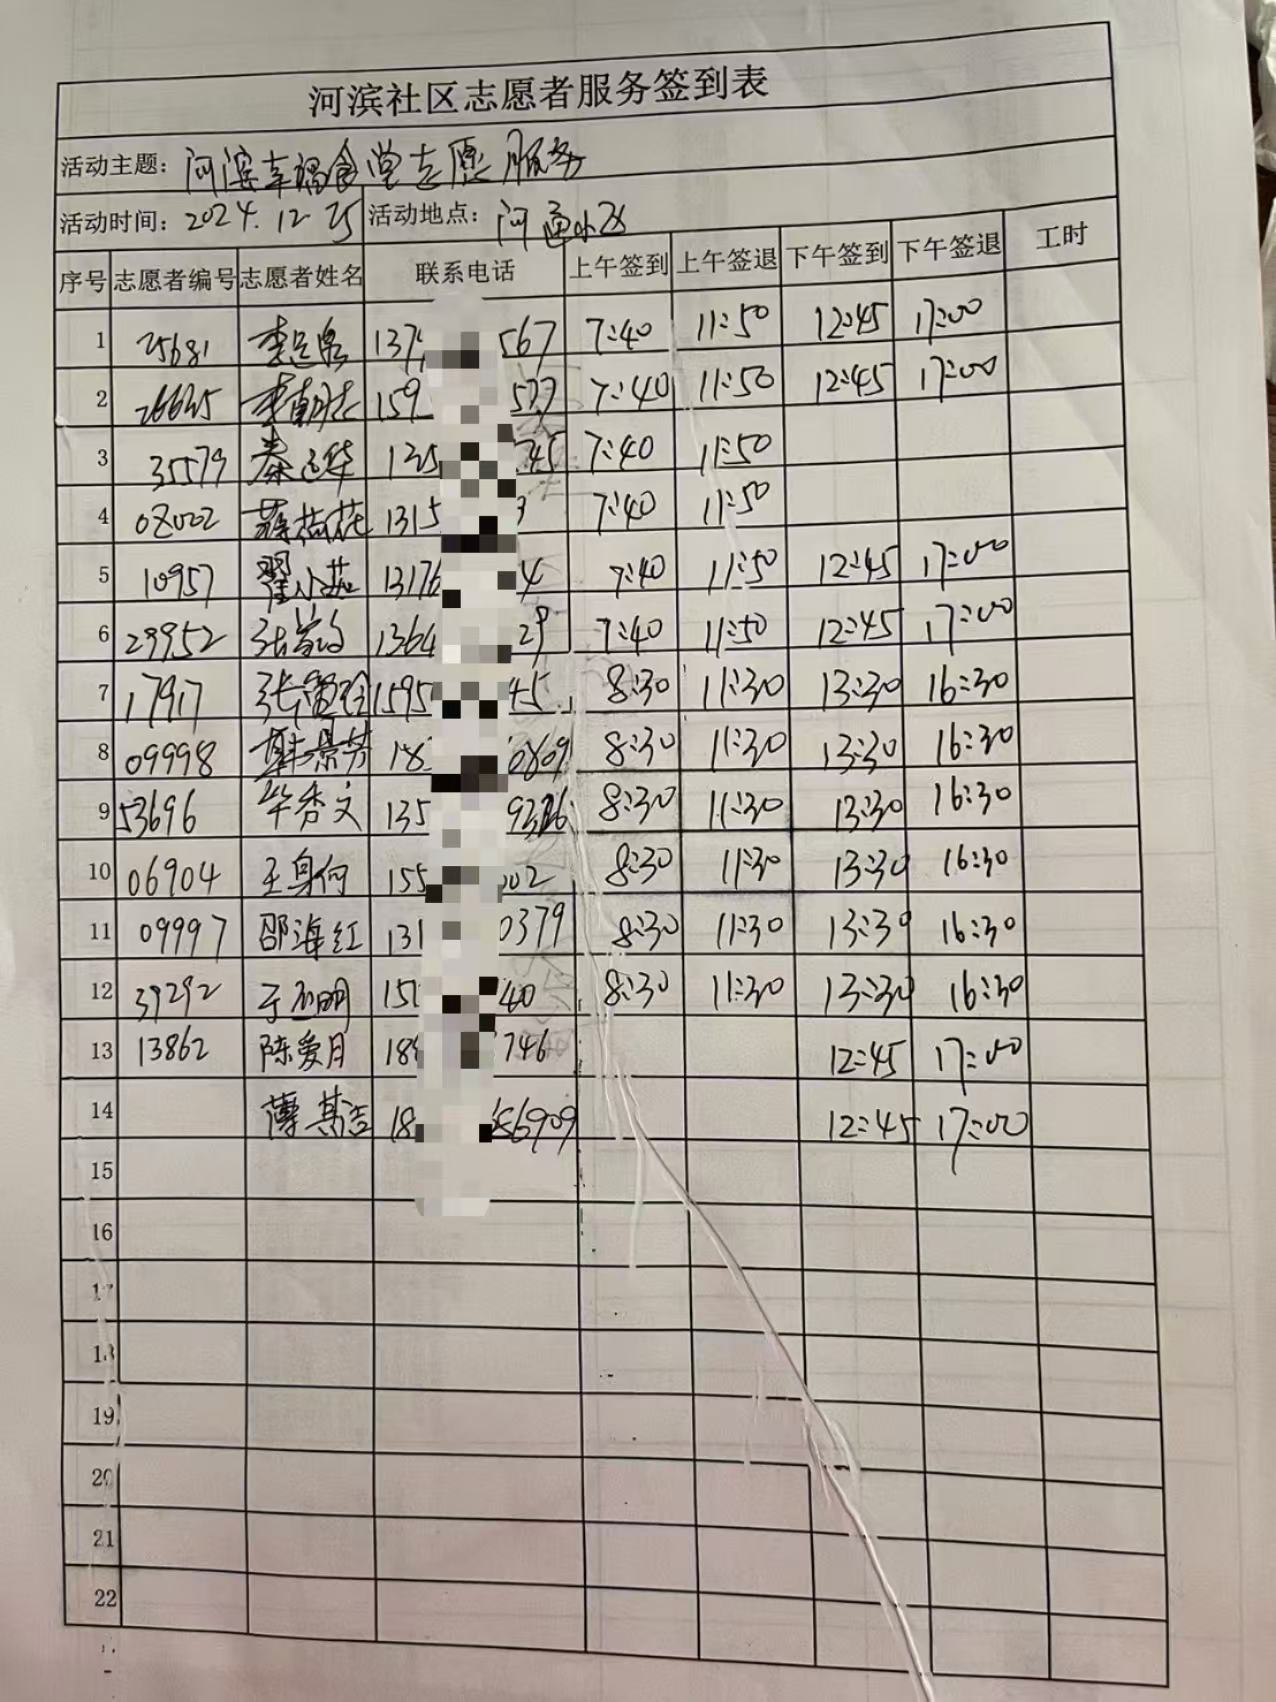 河滨社区志愿者服务签到表
活动主题: 河滨幸福食堂志愿服务
活动时间: 2024.12.25 活动地点: 河通小区
序号 志愿者编号 志愿者姓名 联系电话 上午签到 上午签退 下午签到 下午签退 工时
1 25681 137 567 7:40 11:50 12:45 17:00
2 577 159 7:40 11:50 12:45 17:00
3 35579 秦 华 7:40 11:50
4 荷花 1315 3 7:40 11:50
5 10957 翟小茹 13176 4 7:40 11:50 12:45 17:00
6 29952 张 1364 29 7:40 11:50 12:45 17:00
7 17917 张 1595 45 8:30 11:30 13:30 16:30
8 09998 韩景芳 18 0869 8:30 11:30 13:30 16:30
9 53696 华秀文 135 9326 8:30 11:30 13:30 16:30
10 06904 王身何 155 002 8:30 11:30 13:30 16:30
11 09997 邵海红 131 0379 8:30 11:30 13:30 16:30
12 39292 于 明 151 40 8:30 11:30 13:30 16:30
13 13862 陈爱月 18 746 12:45 17:00
14 薄其吉 18 6909 12:45 17:00
15
16
17
18
19
20
21
22